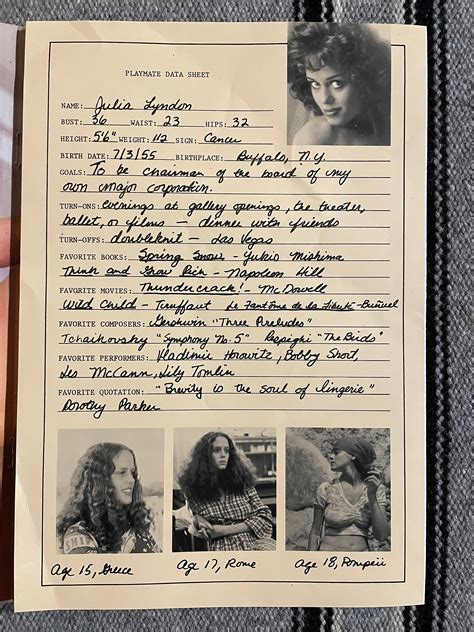 PLAYMATE DATA SHEET
NAME: Julia Lyndon
BUST: 36 WAIST: 23 HIPS: 32
HEIGHT: 5'6" WEIGHT: 112 SIGN: Cancer
BIRTH DATE: 7/3/55 BIRTHPLACE: Buffalo, N.Y.
GOALS: To be chairman of the board of my
own major corporation.
TURN-ONS: evenings at gallery openings, the theater,
ballet, or films - dinner with friends
TURN-OFFS: doubleknit - Las Vegas
FAVORITE BOOKS: Spring Snow - Yukio Mishima
Think and Grow Rich - Napoleon Hill
FAVORITE MOVIES: Thundercrack! - McDowell
Wild Child - Truffaut Le Fantôme de la Liberté - Buñuel
FAVORITE COMPOSERS: Gershwin "Three Preludes"
Tchaikovsky "Symphony No. 5" Respighi "The Birds"
FAVORITE PERFORMERS: Vladimir Horowitz, Bobby Short,
Les McCann, Lily Tomlin
FAVORITE QUOTATION: "Brevity is the soul of lingerie"
Dorothy Parker
Age 15, Greece
Age 17, Rome
Age 18, Pompeii